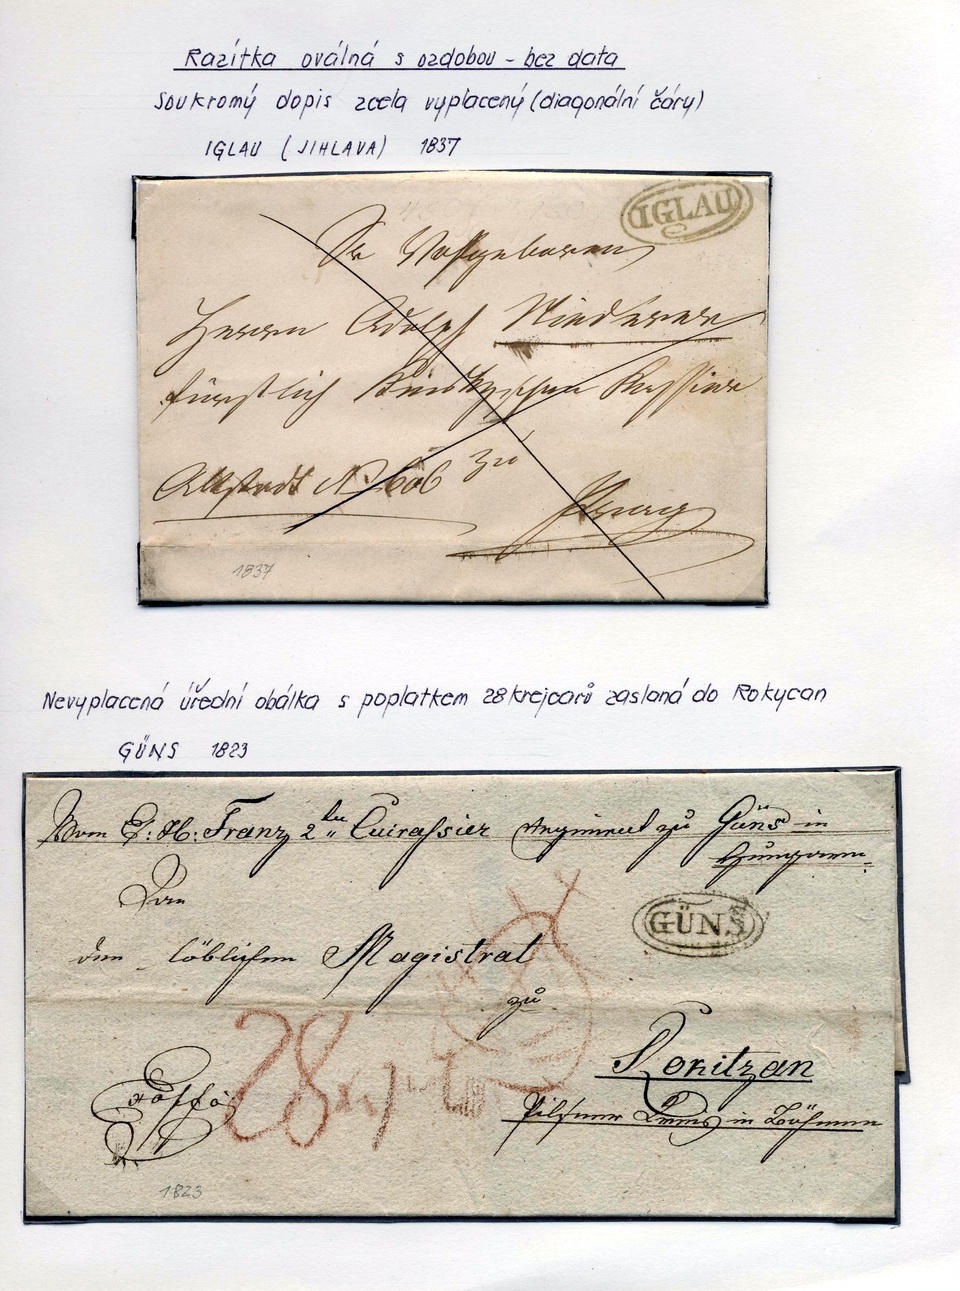 Razítka oválná s ozdobou - bez data
Soukromý dopis zcela vyplacený (diagonální čáry)
IGLAU (JIHLAVA) 1837
IGLAU
Herrn Adolph
fürstlich
Altstadt N zu
Prag
1837
Nevyplacená úřední obálka s poplatkem 28 krejcarů zaslaná do Rokycan
GÜNS 1823
Vom E: H: Franz 2 Cuirassier Regiment zu Güns in
Hungarn.
An
GÜNS
den löblichen Magistrat
zu
28
Rokitzan
Pilsner Kreis in Böhmen
1823